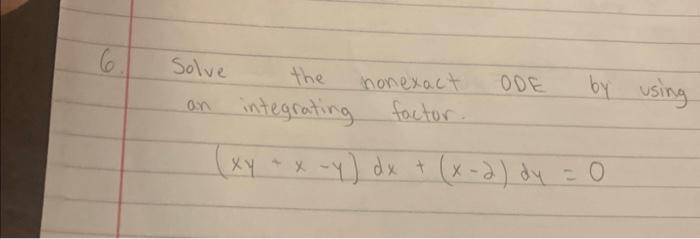 6. Solve the nonexact ODE by using
an integrating factor.
(xy + x - y) dx + (x-2) dy = 0